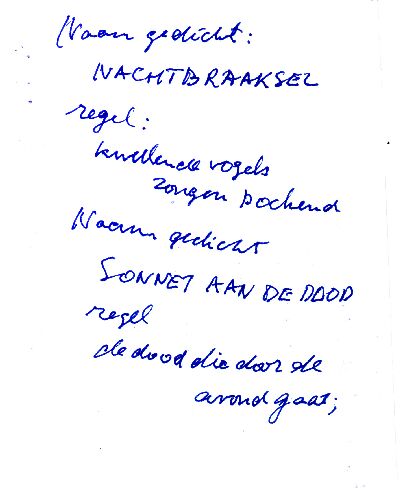 Naam gedicht:
NACHTBRAAKSEL
regel:
kwellende vogels
zongen pochend
Naam gedicht
SONNET AAN DE DOOD
regel
de dood die door de
avond gaat;